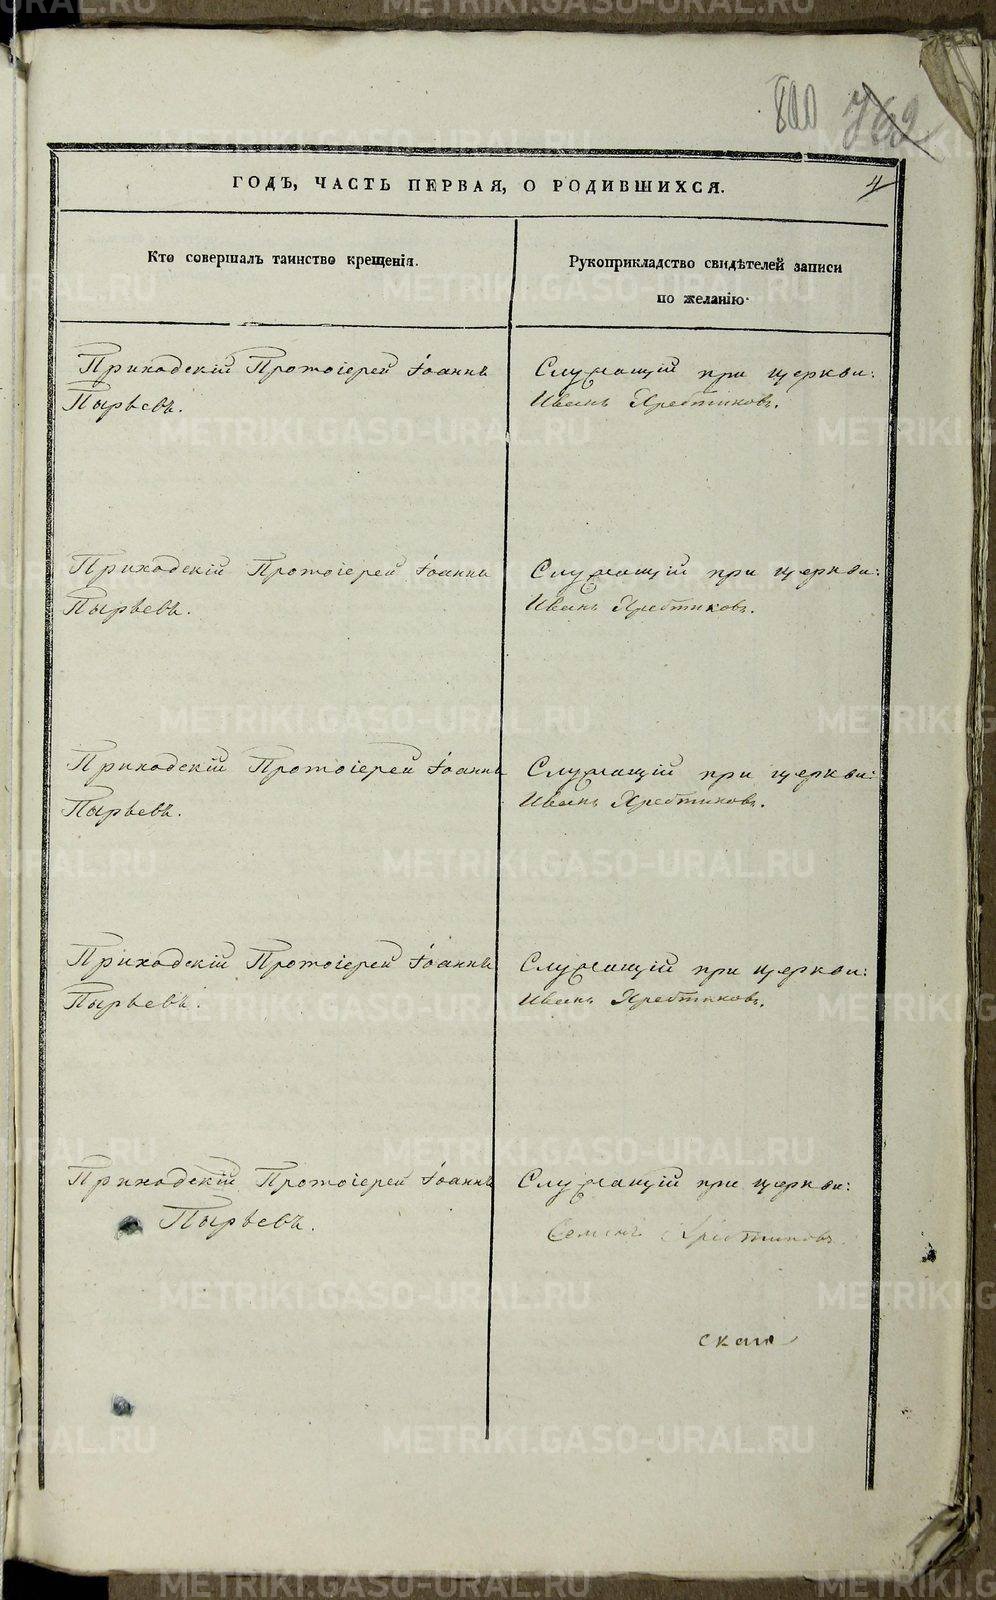 800 769
ГОДЪ, ЧАСТЬ ПЕРВАЯ, О РОДИВШИХСЯ.
4
Кто совершалъ таинство крещенія.
Рукоприкладство свидѣтелей записи
по желанію.
Приходскій Протоіерей Іоаннъ
Пырьевъ.
Служащій при церкви:
Иванъ Хребтиковъ.
Приходскій Протоіерей Іоаннъ
Пырьевъ.
Служащій при церкви:
Иванъ Хребтиковъ.
Приходскій Протоіерей Іоаннъ
Пырьевъ.
Служащій при церкви:
Иванъ Хребтиковъ.
Приходскій Протоіерей Іоаннъ
Пырьевъ.
Служащій при церкви:
Иванъ Хребтиковъ.
Приходскій Протоіерей Іоаннъ
Пырьевъ.
Служащій при церкви:
Семенъ Хребтиковъ.
скаго
METRIKI.GASO-URAL.RU